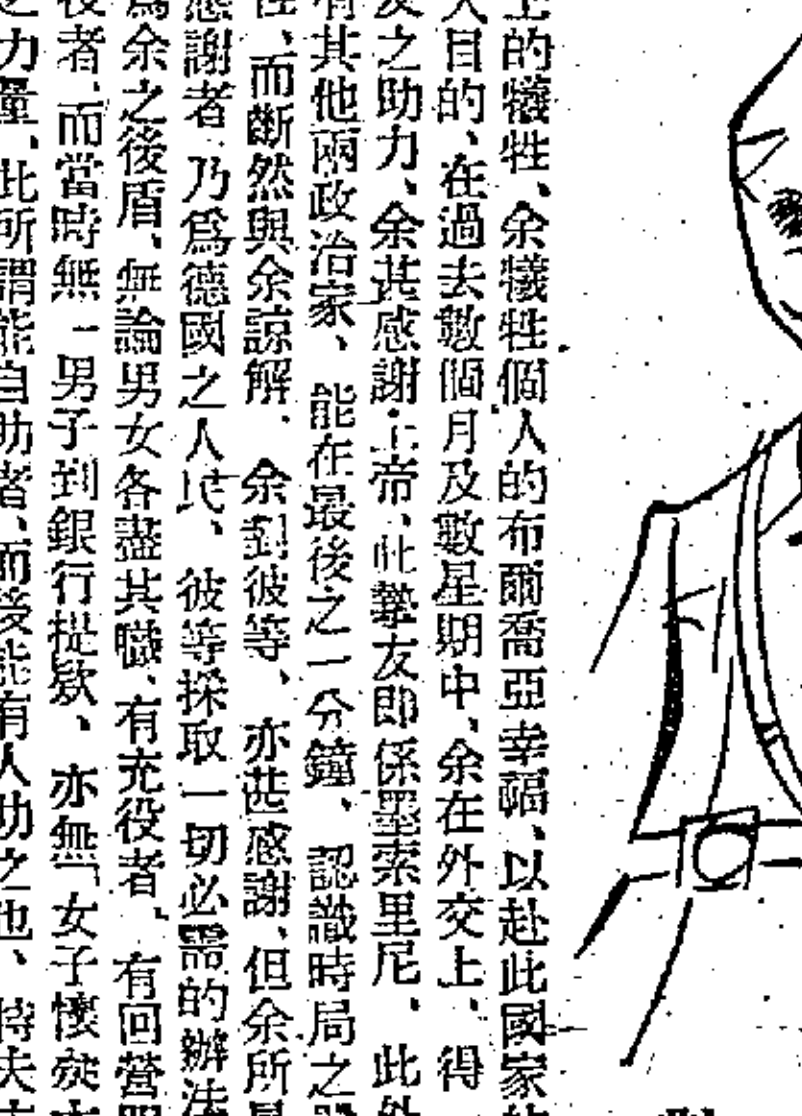 上的犧牲、余犧牲個人的布爾喬亞幸福、以赴此國家的
大目的、在過去數個月及數星期中、余在外交上、得一
友之助力、余甚感謝上帝、此摯友即係墨索里尼、此外
有其他兩政治家、能在最後之一分鐘、認識時局之
性、而斷然與余諒解、余對彼等、亦甚感謝、但余所最
感謝者、乃爲德國之人民、彼等採取一切必需的辦法
爲余之後盾、無論男女各盡其職、有充役者、有回營
役者、而當時無一男子到銀行提欵、亦無一女子懷疑
之力量、此所謂能自助者、而後能有人助之也、特夫